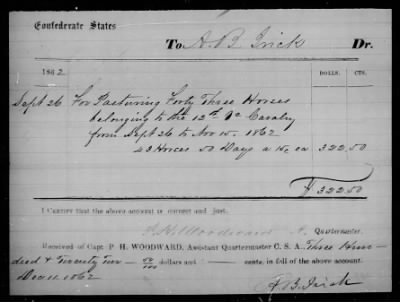 Confederate States
To A. B. Irick Dr.
1862. DOLLS. CTS.
Sept 26 For Pasturing Forty Three Horses
belonging to the 12th Va Cavalry
from Sept 26 to Nov 15. 1862
43 Horses 50 Days a 15c ea 322.50
$322.50
I CERTIFY that the above account is correct and just.
P. H. Woodward A. Quartermaster.
Received of Capt. P. H. WOODWARD, Assistant Quartermaster C. S. A., Three Hun-
dred & Twenty Two 50/100 dollars and cents, in full of the above account.
Dec 11 1862
A. B. Irick